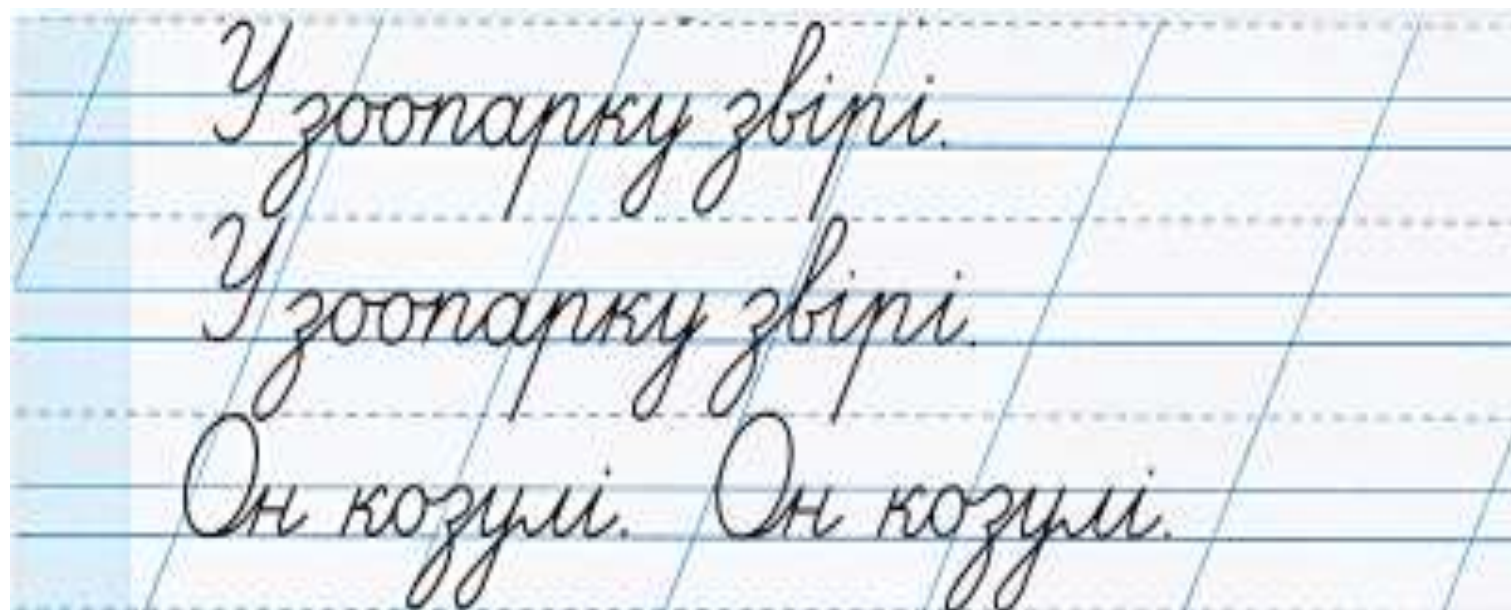 У зоопарку звірі.
У зоопарку звірі.
Он козулі. Он козулі.